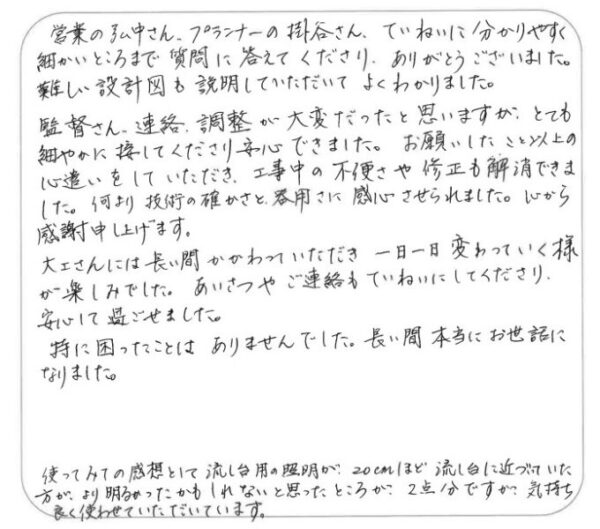 営業の弘中さん、プランナーの掛谷さん、ていねいに分かりやすく
細かいところまで質問に答えてくださり、ありがとうございました。
難しい設計図も説明していただいてよくわかりました。
監督さん、連絡、調整が大変だったと思いますが、とても
細やかに接してくださり安心できました。お願いしたこと以上の
心遣いをしていただき、工事中の不便さや修正も解消できま
した。何より技術の確かさと、器用さに感心させられました。心から
感謝申し上げます。
大工さんには長い間かかわっていただき一日一日変わっていく様
が楽しみでした。あいさつやご連絡もていねいにしてくださり、
安心して過ごせました。
特に困ったことはありませんでした。長い間本当にお世話に
なりました。
使ってみての感想として流し台用の照明が、20cmほど流し台に近づいていた
方が、より明るかったかもしれないと思ったところが、2点分ですが、気持ち
良く使わせていただいています。